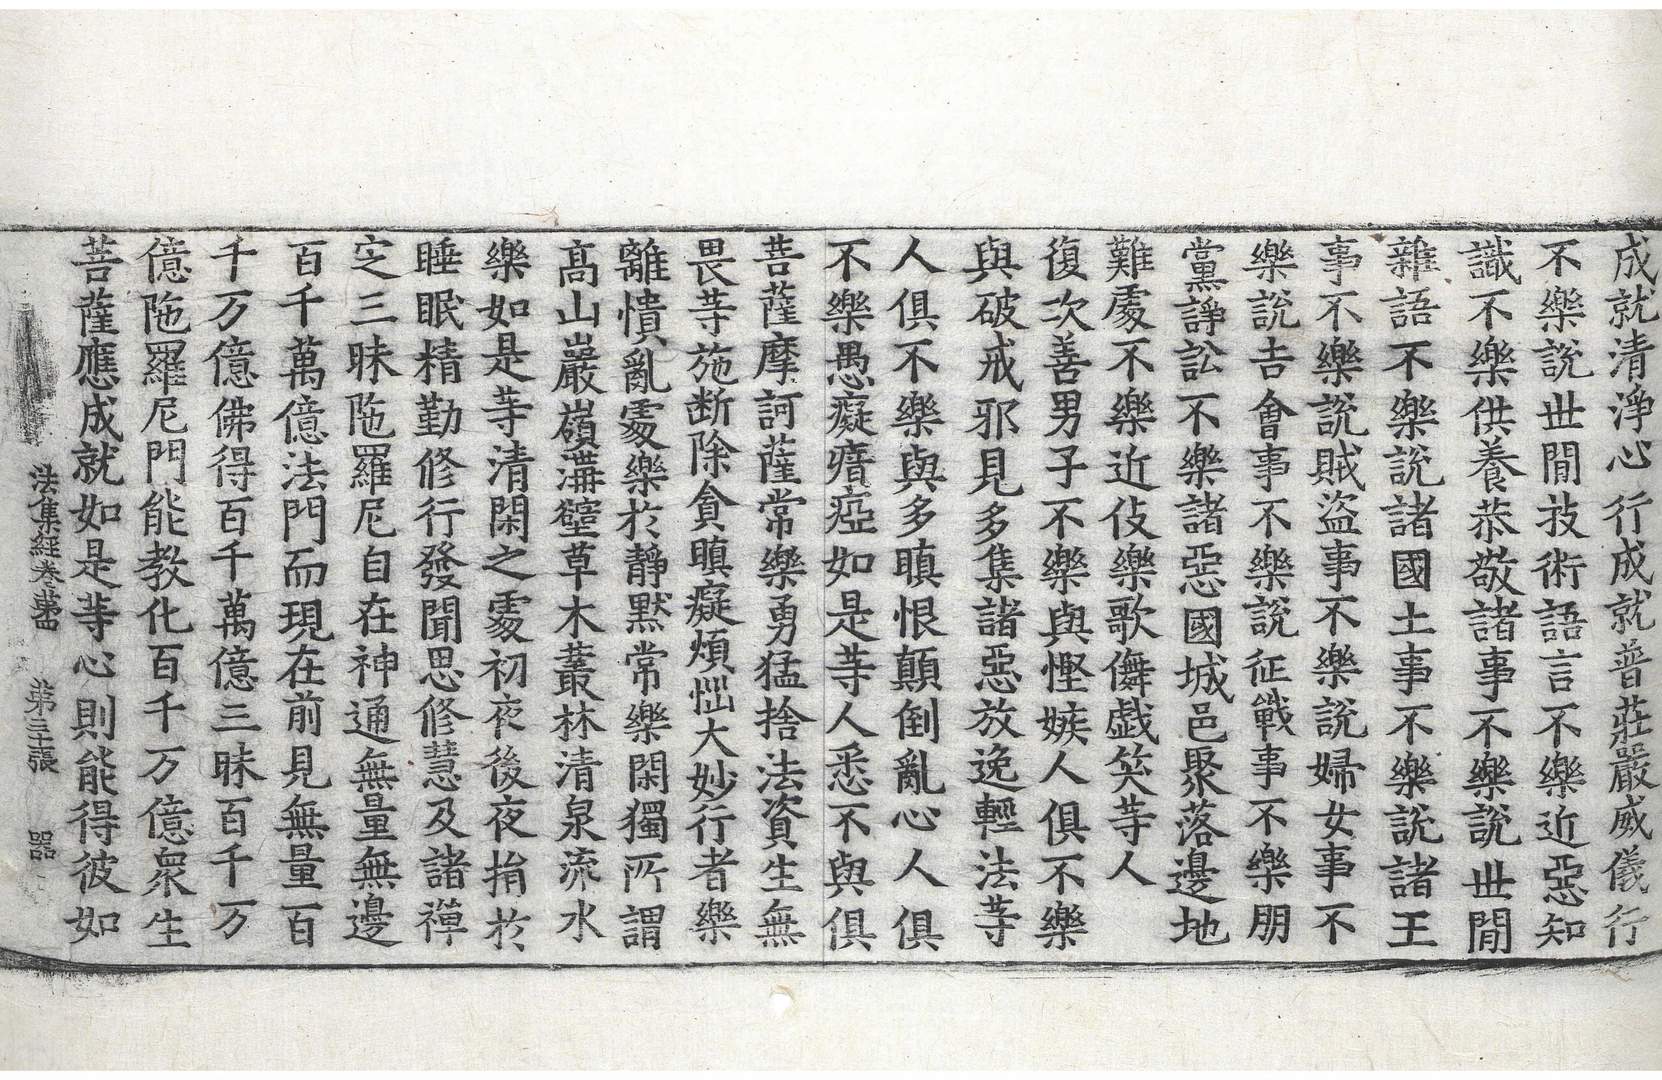 成就清淨心行成就普莊嚴威儀行
不樂說世間技術語言不樂近惡知
識不樂供養恭敬諸事不樂說世間
雜語不樂說諸國土事不樂說諸王
事不樂說賊盜事不樂說婦女事不
樂說吉會事不樂說征戰事不樂朋
黨諍訟不樂諸惡國城邑聚落邊地
難處不樂近伎樂歌儛戲笑等人
復次善男子不樂與慳嫉人俱不樂
與破戒邪見多集諸惡放逸輕法等
人俱不樂與多瞋恨顛倒亂心人俱
不樂愚癡瘖瘂如是等人悉不與俱
菩薩摩訶薩常樂勇猛捨法資生無
畏等施断除貪瞋癡煩惱大妙行者樂
離憒亂處樂於靜默常樂閑獨所謂
高山巖嶺溝壑草木叢林清泉流水
樂如是等清閑之處初夜後夜捐於
睡眠精勤修行發聞思修慧及諸禪
定三昧陁羅尼自在神通無量無邊
百千萬億法門而現在前見無量百
千万億佛得百千萬億三昧百千万
億陁羅尼門能教化百千万億衆生
菩薩應成就如是等心則能得彼如
法集經卷第四 第三十張 器